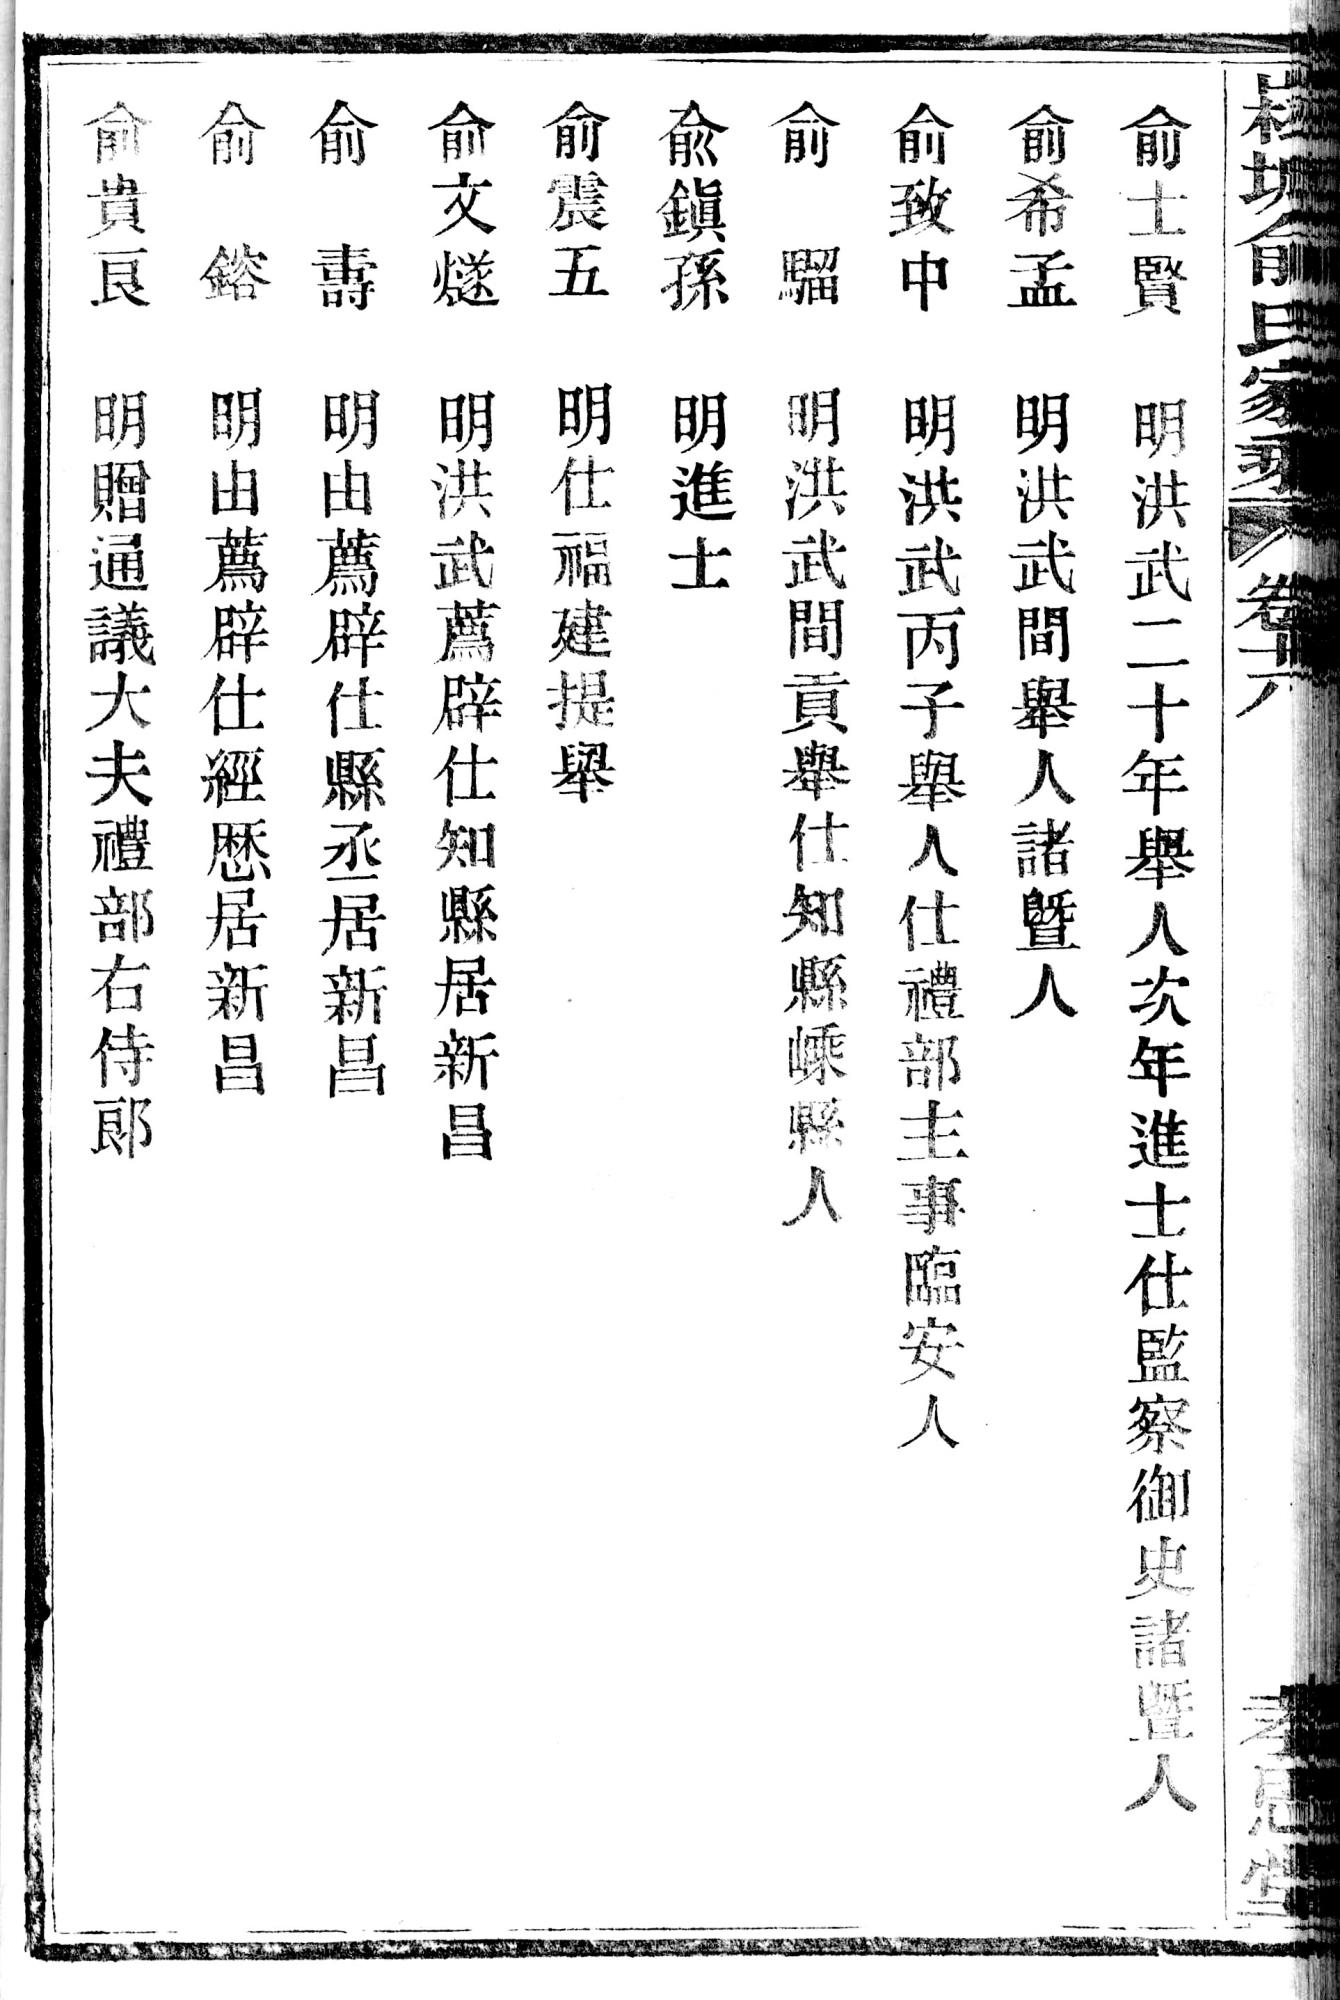 俞氏家乘 卷十六
孝思堂
俞士賢 明洪武二十年舉人次年進士仕監察御史諸暨人
俞希孟 明洪武間舉人諸暨人
俞致中 明洪武丙子舉人仕禮部主事臨安人
俞 騮 明洪武間貢舉仕知縣嵊縣人
俞鎭孫 明進士
俞震五 明仕福建提舉
俞文燧 明洪武薦辟仕知縣居新昌
俞 壽 明由薦辟仕縣丞居新昌
俞 鎔 明由薦辟仕經歷居新昌
俞貴良 明贈通議大夫禮部右侍郞